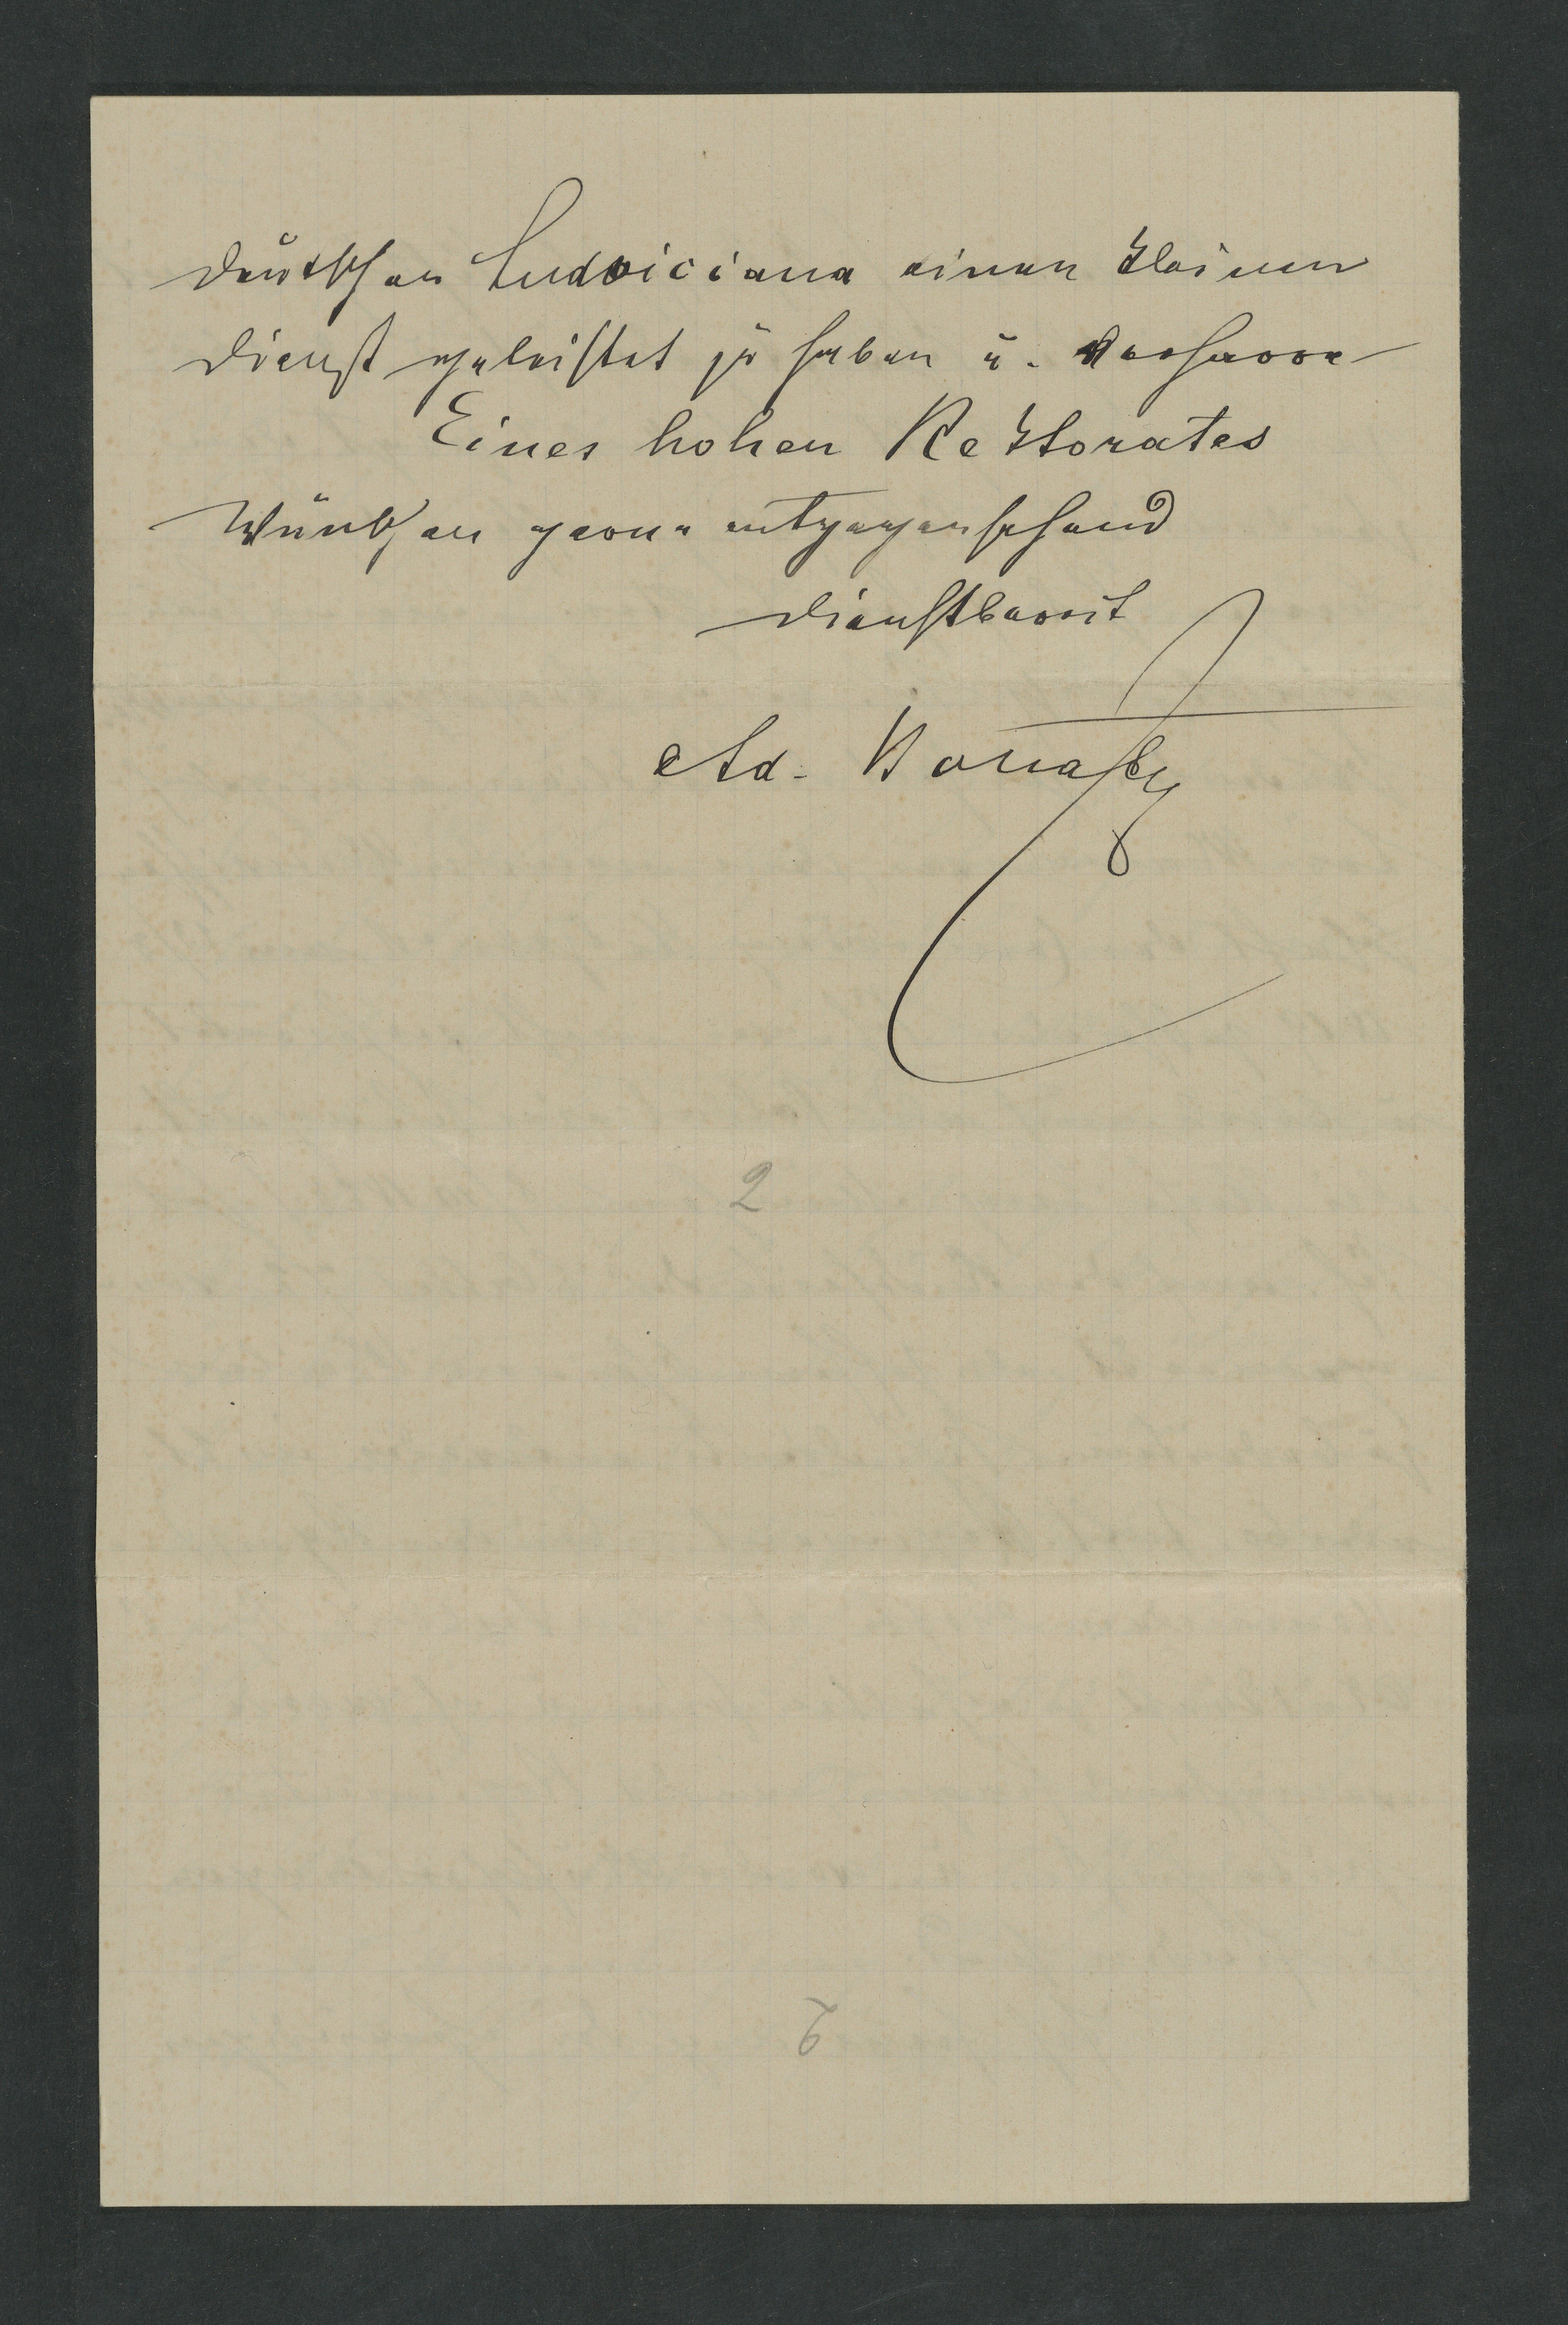 deutschen Ludoviciana einen kleinen
Dienst geleistet zu haben u. verharre
Eines hohen Rektorates
Wünschen gerne entgegensehend
dienstbereit
Ad.
2
2